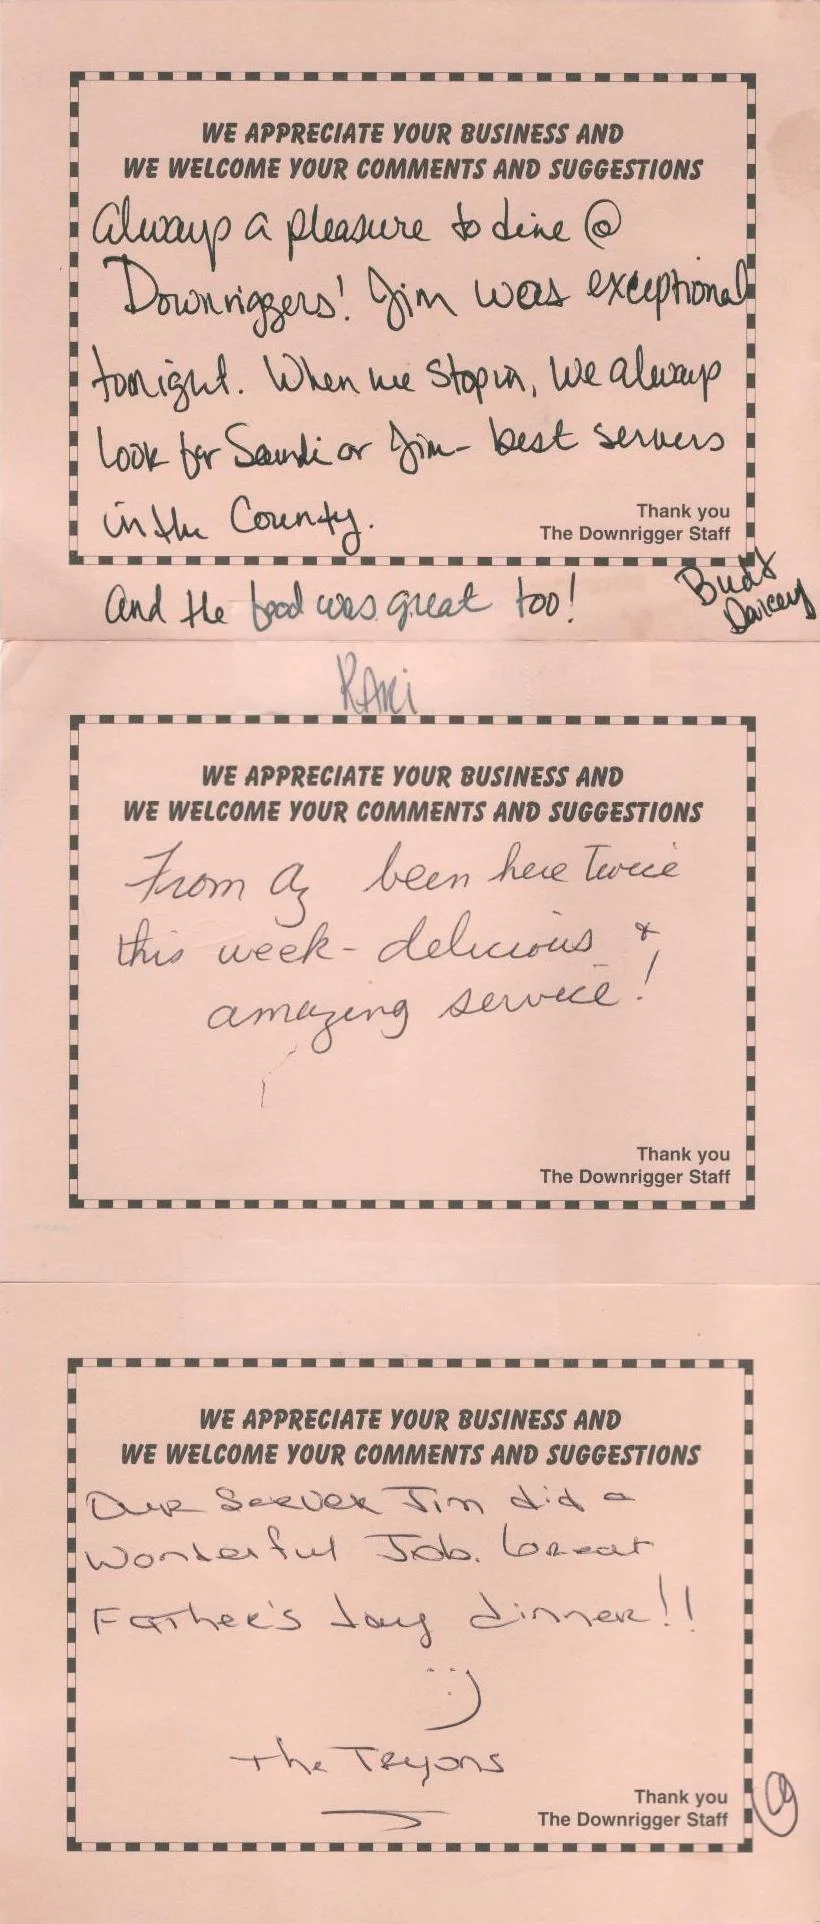 WE APPRECIATE YOUR BUSINESS AND
WE WELCOME YOUR COMMENTS AND SUGGESTIONS
Always a pleasure to dine @
Downriggers! Jim was exceptional
tonight. When we stop in, we always
look for Sandi or Jim - best servers
in the County.
Thank you
The Downrigger Staff
And the food was great too!
Bud &
Darcey
KARI
WE APPRECIATE YOUR BUSINESS AND
WE WELCOME YOUR COMMENTS AND SUGGESTIONS
From Az been here Twice
this week - delicious &
amazing service!
Thank you
The Downrigger Staff
WE APPRECIATE YOUR BUSINESS AND
WE WELCOME YOUR COMMENTS AND SUGGESTIONS
Our Server Jim did a
Wonderful Job. Great
Father's day dinner!!
:)
The Tryons
Thank you
The Downrigger Staff